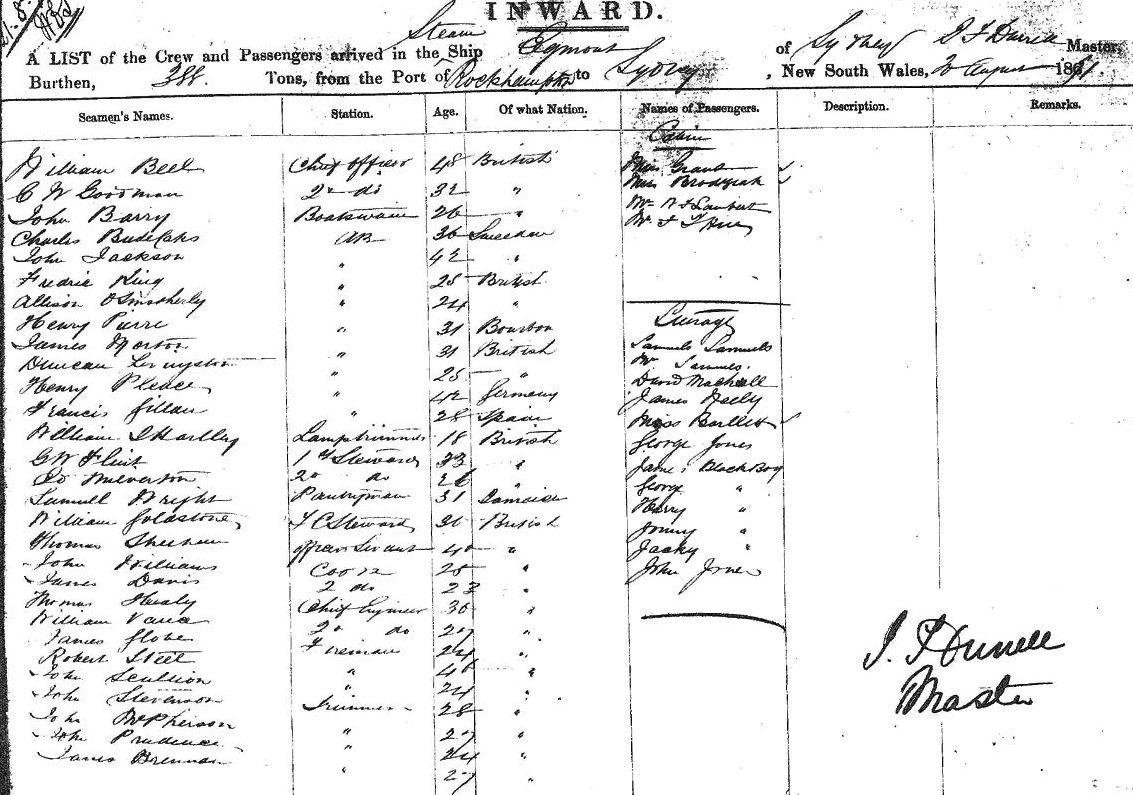 INWARD.
A LIST of the Crew and Passengers arrived in the Steam Ship Egmont of Sydney Master,
Burthen, 388. Tons, from the Port of Rockhampton to Sydney, New South Wales, August 186
Seamen's Names. Station. Age. Of what Nation. Names of Passengers. Description. Remarks.
Cabin
William Bell Chief officer 48 British Grant
C W Goodman 2nd do 32 " Miss Brodziak
John Barry Boatswain 26 " Mr Lambert
Charles AB 36 Sweeden Mr
John Jackson " 42 "
Fredric King " 25 British
Allison " 24 "
Henry Pierre " 31 Bourbon Steerage
James Morton " 31 British Samuels Samuels
Duncan Livingston " 25 " Mr Samuels
Henry Pleace " 42 Germany David
Francis Gillan " 28 Spain James Neely
William Hartley Lamptrimmer 18 British Miss Bartlett
G W Flint 1st Steward 33 " George Jones
Ed Mulverton 2nd do 26 " James Black Boy
Samuell Wright Pantryman 31 Jamaica George "
William Goldstone F C Steward 36 British Henry "
Thomas Sheehan officers Servant 40 " Jonny "
John Williams Cook 25 " Jacky "
James Davis 2 do 23 " John Jones
Thomas Healy Chief Engineer 30 "
William 2nd do 27 "
James Glove Fireman 24 "
Robert Steel " 46 "
John Scullion " 24 "
John Stevenson Trimmer 28 "
John McPherson " 27 "
John Prudence " 24 "
James Brennan " 27 "
Master